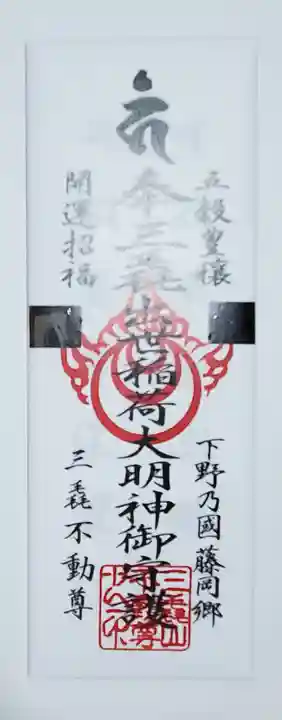 五穀豊穣
奉三毳出世稲荷大明神御守護
開運招福
下野乃國藤岡郷
三毳不動尊